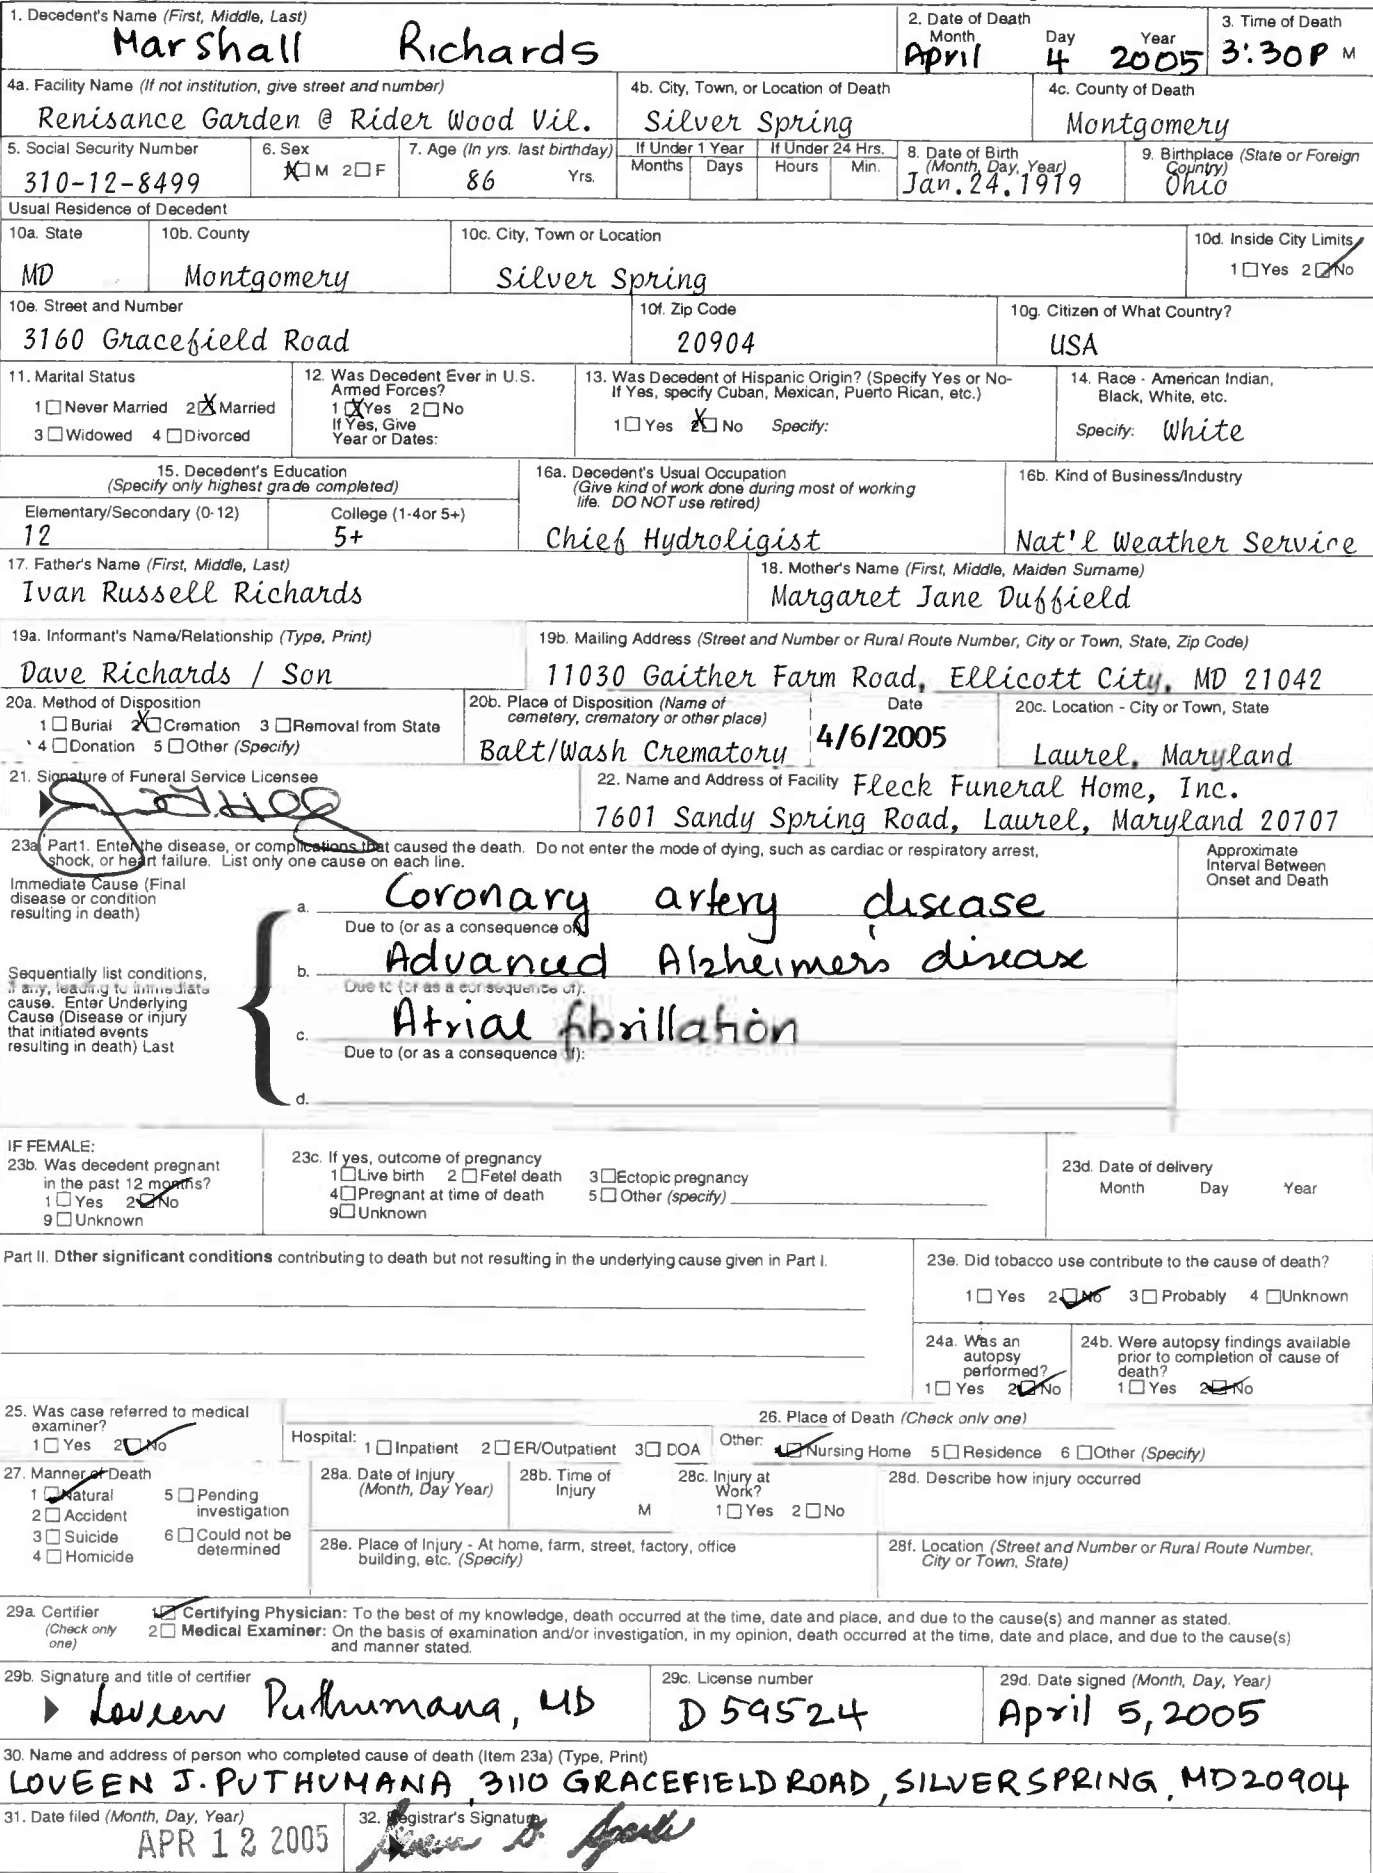 1. Decedent's Name (First, Middle, Last)
Marshall Richards
2. Date of Death
Month Day Year
April 4 2005
3. Time of Death
3:30P M
4a. Facility Name (If not institution, give street and number)
Renisance Garden @ Rider Wood Vil.
4b. City, Town, or Location of Death
Silver Spring
4c. County of Death
Montgomery
5. Social Security Number
310-12-8499
6. Sex
X☐ M 2☐ F
7. Age (In yrs. last birthday)
86 Yrs.
If Under 1 Year
Months Days
If Under 24 Hrs.
Hours Min.
8. Date of Birth
(Month, Day, Year)
Jan.24.1919
9. Birthplace (State or Foreign
Country)
Ohio
Usual Residence of Decedent
10a. State
MD
10b. County
Montgomery
10c. City, Town or Location
Silver Spring
10d. Inside City Limits
1 ☐ Yes 2 ☑ No
10e. Street and Number
3160 Gracefield Road
10f. Zip Code
20904
10g. Citizen of What Country?
USA
11. Marital Status
1 ☐ Never Married 2 ☒ Married
3 ☐ Widowed 4 ☐ Divorced
12. Was Decedent Ever in U.S.
Armed Forces?
1 ☒ Yes 2 ☐ No
If Yes, Give
Year or Dates:
13. Was Decedent of Hispanic Origin? (Specify Yes or No-
If Yes, specify Cuban, Mexican, Puerto Rican, etc.)
1 ☐ Yes 2 ☒ No Specify:
14. Race - American Indian,
Black, White, etc.
Specify: White
15. Decedent's Education
(Specify only highest grade completed)
Elementary/Secondary (0-12)
12
College (1-4or 5+)
5+
16a. Decedent's Usual Occupation
(Give kind of work done during most of working
life. DO NOT use retired)
Chief Hydroligist
16b. Kind of Business/Industry
Nat'l Weather Service
17. Father's Name (First, Middle, Last)
Ivan Russell Richards
18. Mother's Name (First, Middle, Maiden Surname)
Margaret Jane Duffield
19a. Informant's Name/Relationship (Type, Print)
Dave Richards / Son
19b. Mailing Address (Street and Number or Rural Route Number, City or Town, State, Zip Code)
11030 Gaither Farm Road, Ellicott City, MD 21042
20a. Method of Disposition
1 ☐ Burial 2 ☒ Cremation 3 ☐ Removal from State
4 ☐ Donation 5 ☐ Other (Specify)
20b. Place of Disposition (Name of
cemetery, crematory or other place)
Balt/Wash Crematory
Date
4/6/2005
20c. Location - City or Town, State
Laurel, Maryland
21. Signature of Funeral Service Licensee
22. Name and Address of Facility Fleck Funeral Home, Inc.
7601 Sandy Spring Road, Laurel, Maryland 20707
23a Part1. Enter the disease, or complications that caused the death. Do not enter the mode of dying, such as cardiac or respiratory arrest,
shock, or heart failure. List only one cause on each line.
Approximate
Interval Between
Onset and Death
Immediate Cause (Final
disease or condition
resulting in death)
a. Coronary artery disease
Due to (or as a consequence of
Sequentially list conditions,
if any, leading to immediate
cause. Enter Underlying
Cause (Disease or injury
that initiated events
resulting in death) Last
b. Advanced Alzheimer's disease
Due to (or as a consequence of):
c. Atrial fibrillation
Due to (or as a consequence of):
d.
IF FEMALE:
23b. Was decedent pregnant
in the past 12 months?
1 ☐ Yes 2 ☑ No
9 ☐ Unknown
23c. If yes, outcome of pregnancy
1 ☐ Live birth 2 ☐ Fetel death 3 ☐ Ectopic pregnancy
4 ☐ Pregnant at time of death 5 ☐ Other (specify)
9 ☐ Unknown
23d. Date of delivery
Month Day Year
Part II. Dther significant conditions contributing to death but not resulting in the underlying cause given in Part I.
23e. Did tobacco use contribute to the cause of death?
1 ☐ Yes 2 ☑ No 3 ☐ Probably 4 ☐ Unknown
24a. Was an
autopsy
performed?
1 ☐ Yes 2 ☑ No
24b. Were autopsy findings available
prior to completion of cause of
death?
1 ☐ Yes 2 ☑ No
25. Was case referred to medical
examiner?
1 ☐ Yes 2 ☑ No
26. Place of Death (Check only one)
Hospital: 1 ☐ Inpatient 2 ☐ ER/Outpatient 3 ☐ DOA
Other: ☑ Nursing Home 5 ☐ Residence 6 ☐ Other (Specify)
27. Manner of Death
1 ☑ Natural 5 ☐ Pending
investigation
2 ☐ Accident
3 ☐ Suicide 6 ☐ Could not be
determined
4 ☐ Homicide
28a. Date of Injury
(Month, Day Year)
28b. Time of
Injury
M
28c. Injury at
Work?
1 ☐ Yes 2 ☐ No
28d. Describe how injury occurred
28e. Place of Injury - At home, farm, street, factory, office
building, etc. (Specify)
28f. Location (Street and Number or Rural Route Number,
City or Town, State)
29a. Certifier
(Check only
one)
1 ☑ Certifying Physician: To the best of my knowledge, death occurred at the time, date and place, and due to the cause(s) and manner as stated.
2 ☐ Medical Examiner: On the basis of examination and/or investigation, in my opinion, death occurred at the time, date and place, and due to the cause(s)
and manner stated.
29b. Signature and title of certifier
Loveen Puthumana, MD
29c. License number
D 59524
29d. Date signed (Month, Day, Year)
April 5, 2005
30. Name and address of person who completed cause of death (Item 23a) (Type, Print)
LOVEEN J. PUTHUMANA, 3110 GRACEFIELD ROAD, SILVER SPRING, MD 20904
31. Date filed (Month, Day, Year)
APR 12 2005
32. Registrar's Signature